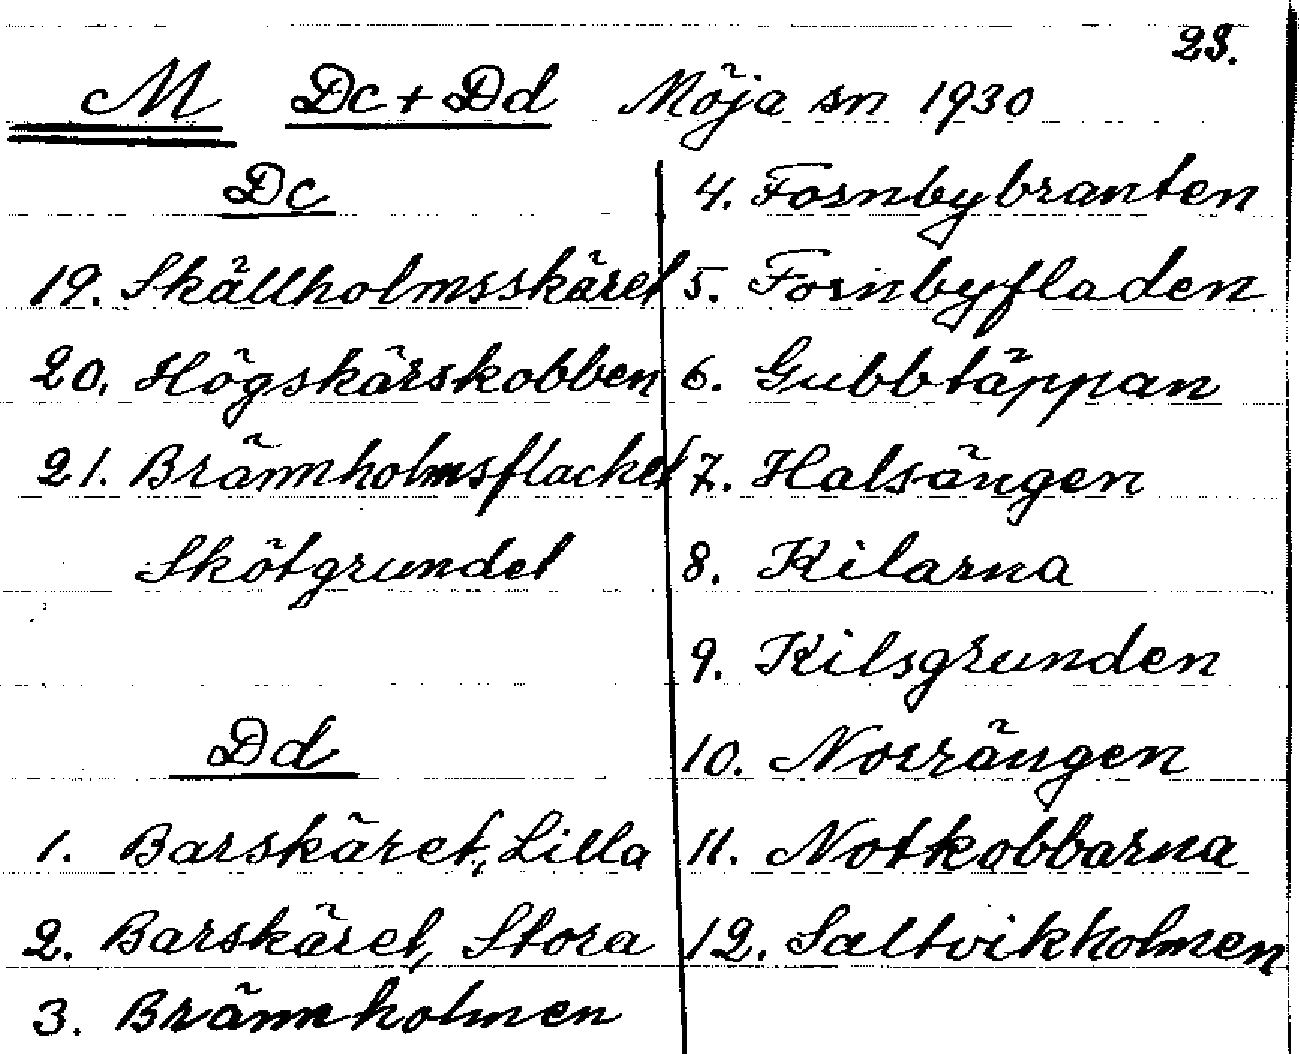 23.
M Dc + Dd Möja sn 1930
Dc
19. Skällholmsskäret
20. Högskärskobben
21. Brännholmsflacket
Skötgrundet
Dd
1. Barskäret, Lilla
2. Barskäret, Stora
3. Brännholmen
4. Fornbybranten
5. Fornbyfladen
6. Gubbtäppan
7. Halsängen
8. Kilarna
9. Kilsgrunden
10. Norrängen
11. Notkobbarna
12. Saltvikholmen